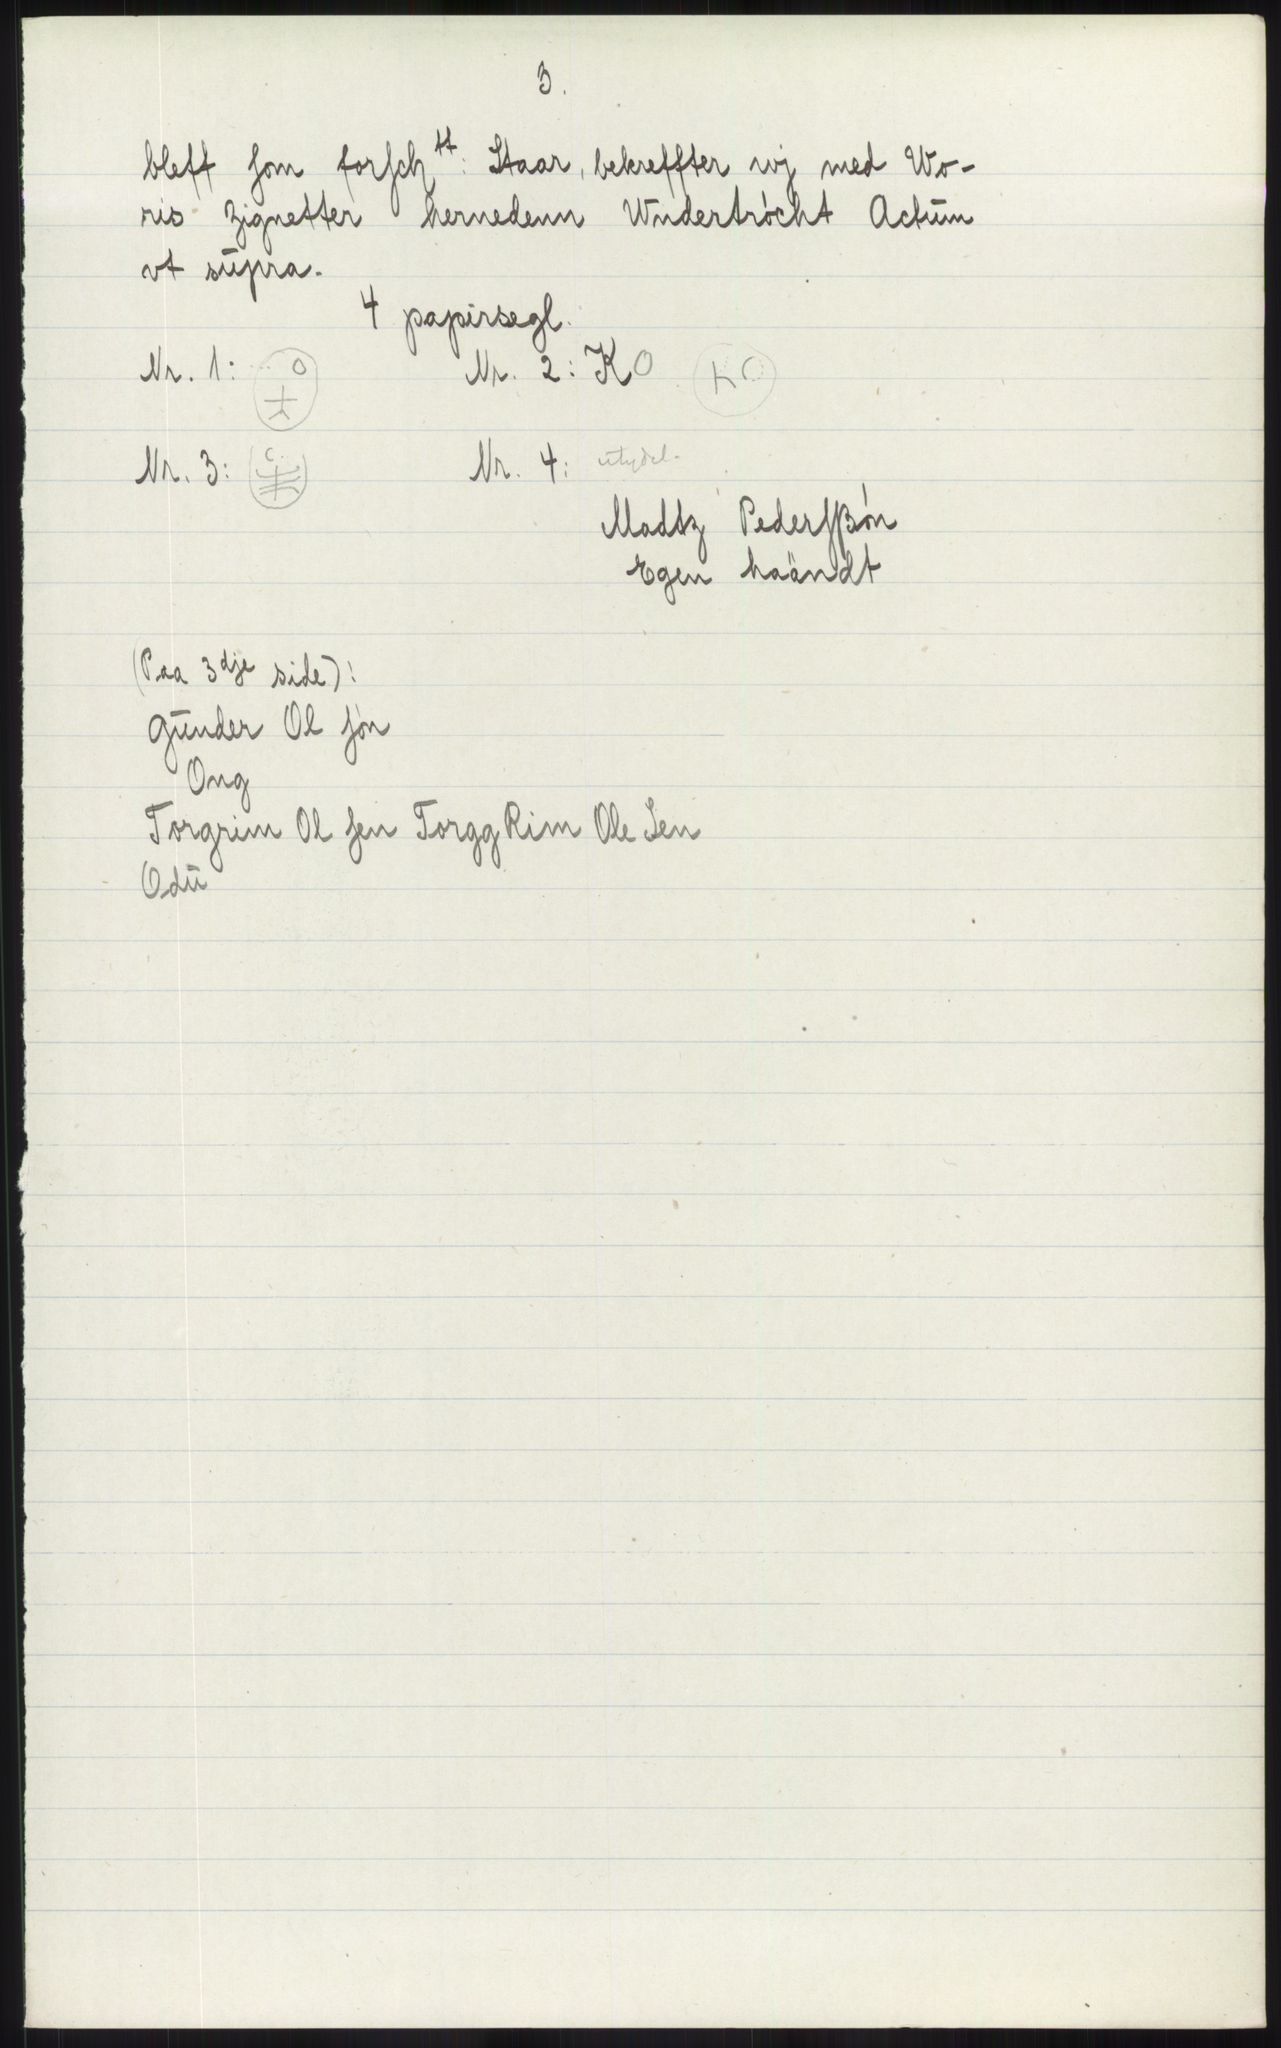 3.
bleff ſom forſch tt: Staar, bekreffter wj med Wo-
ris Zignetter hernedenn Wndertrócht Actūm
vt sūpra.
4 papirsegl.
Nr. 1: O Nr. 2: KO KO
Nr. 3: Nr. 4: utydel.
Madtz Pederſßón
Egen haāndt
(Paa 3dje side):
gūnder Ol ſón
Ong
Torgrim Ol ſen Torgg Rim Ole Sen
Odū